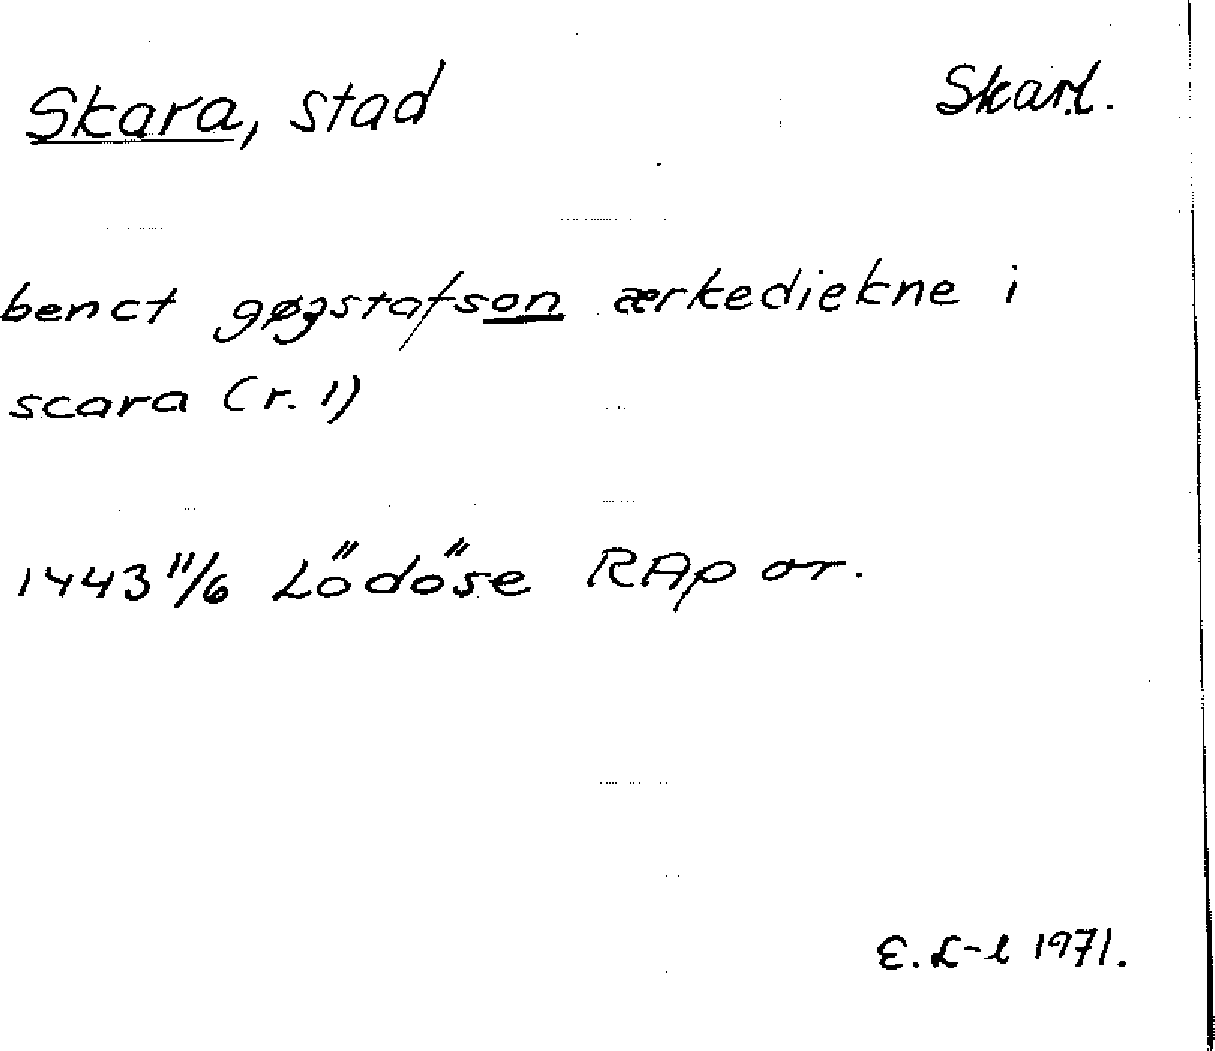 Skara, stad
Skarl.
benct gøgstafson ærkediekne i
scara (r. 1)
1443 11/6 Lödöse RAp or.
E. L-l 1971.